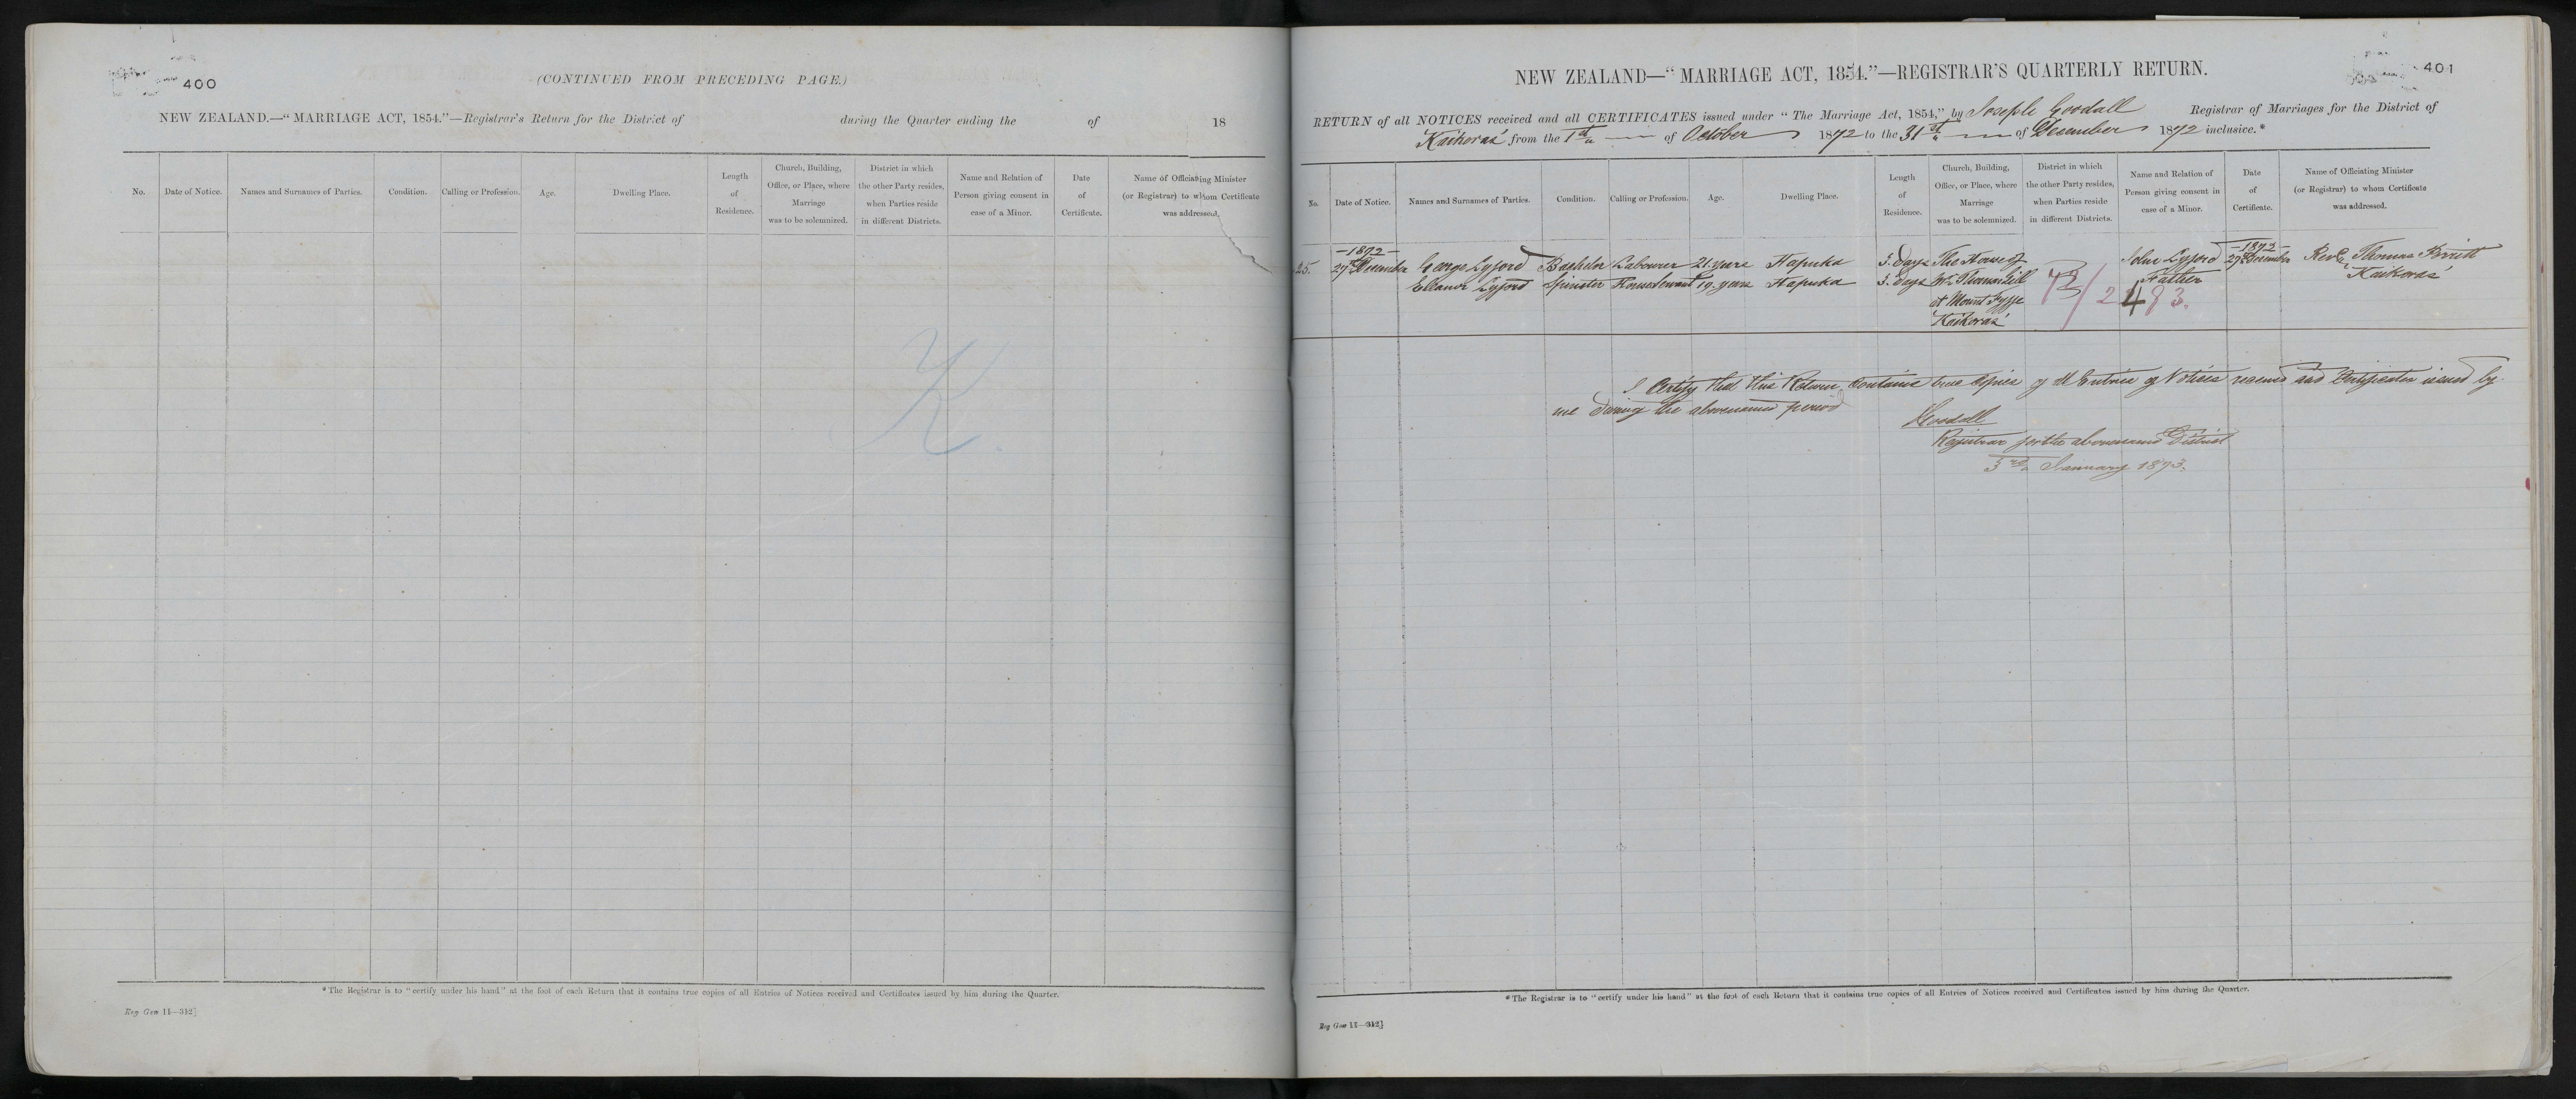 400
(CONTINUED FROM PRECEDING PAGE.)
NEW ZEALAND.—“MARRIAGE ACT, 1854.”—Registrar's Return for the District of during the Quarter ending the of 18
No.
Date of Notice.
Names and Surnames of Parties.
Condition.
Calling or Profession.
Age.
Dwelling Place.
Length
of
Residence.
Church, Building,
Office, or Place, where
Marriage
was to be solemnized.
District in which
the other Party resides,
when Parties reside
in different Districts.
Name and Relation of
Person giving consent in
case of a Minor.
Date
of
Certificate.
Name of Officiating Minister
(or Registrar) to whom Certificate
was addressed.
K.
*The Registrar is to “certify under his hand” at the foot of each Return that it contains true copies of all Entries of Notices received and Certificates issued by him during the Quarter.
Reg Gen 11—312]
401
NEW ZEALAND—“MARRIAGE ACT, 1854.”—REGISTRAR'S QUARTERLY RETURN.
RETURN of all NOTICES received and all CERTIFICATES issued under “The Marriage Act, 1854,” by Joseph Goodall Registrar of Marriages for the District of
Kaikoras from the 1st of October 1872 to the 31st of December 1872 inclusive.*
No.
Date of Notice.
Names and Surnames of Parties.
Condition.
Calling or Profession.
Age.
Dwelling Place.
Length
of
Residence.
Church, Building,
Office, or Place, where
Marriage
was to be solemnized.
District in which
the other Party resides,
when Parties reside
in different Districts.
Name and Relation of
Person giving consent in
case of a Minor.
Date
of
Certificate.
Name of Officiating Minister
(or Registrar) to whom Certificate
was addressed.
—1872— —1872—
25. 27th December George Lyford Bachelor Labourer 21. years Hapuka 3. Days The House of John Lyford 27th December Revd Thomas
Eleanor Lyford Spinster House Servant 19. years Hapuka 3. Days Mr Thomas Gill Father Kaikoras
at Mount Fyffe 72/2483.
Kaikoras
I Certify that this Return contains true Copies of all Entries of Notices received and Certificates issued by
me during the abovenamed period
JGoodall
Registrar for the abovenamed District
3rd January 1873.
*The Registrar is to “certify under his hand” at the foot of each Return that it contains true copies of all Entries of Notices received and Certificates issued by him during the Quarter.
Reg Gen 11—312]